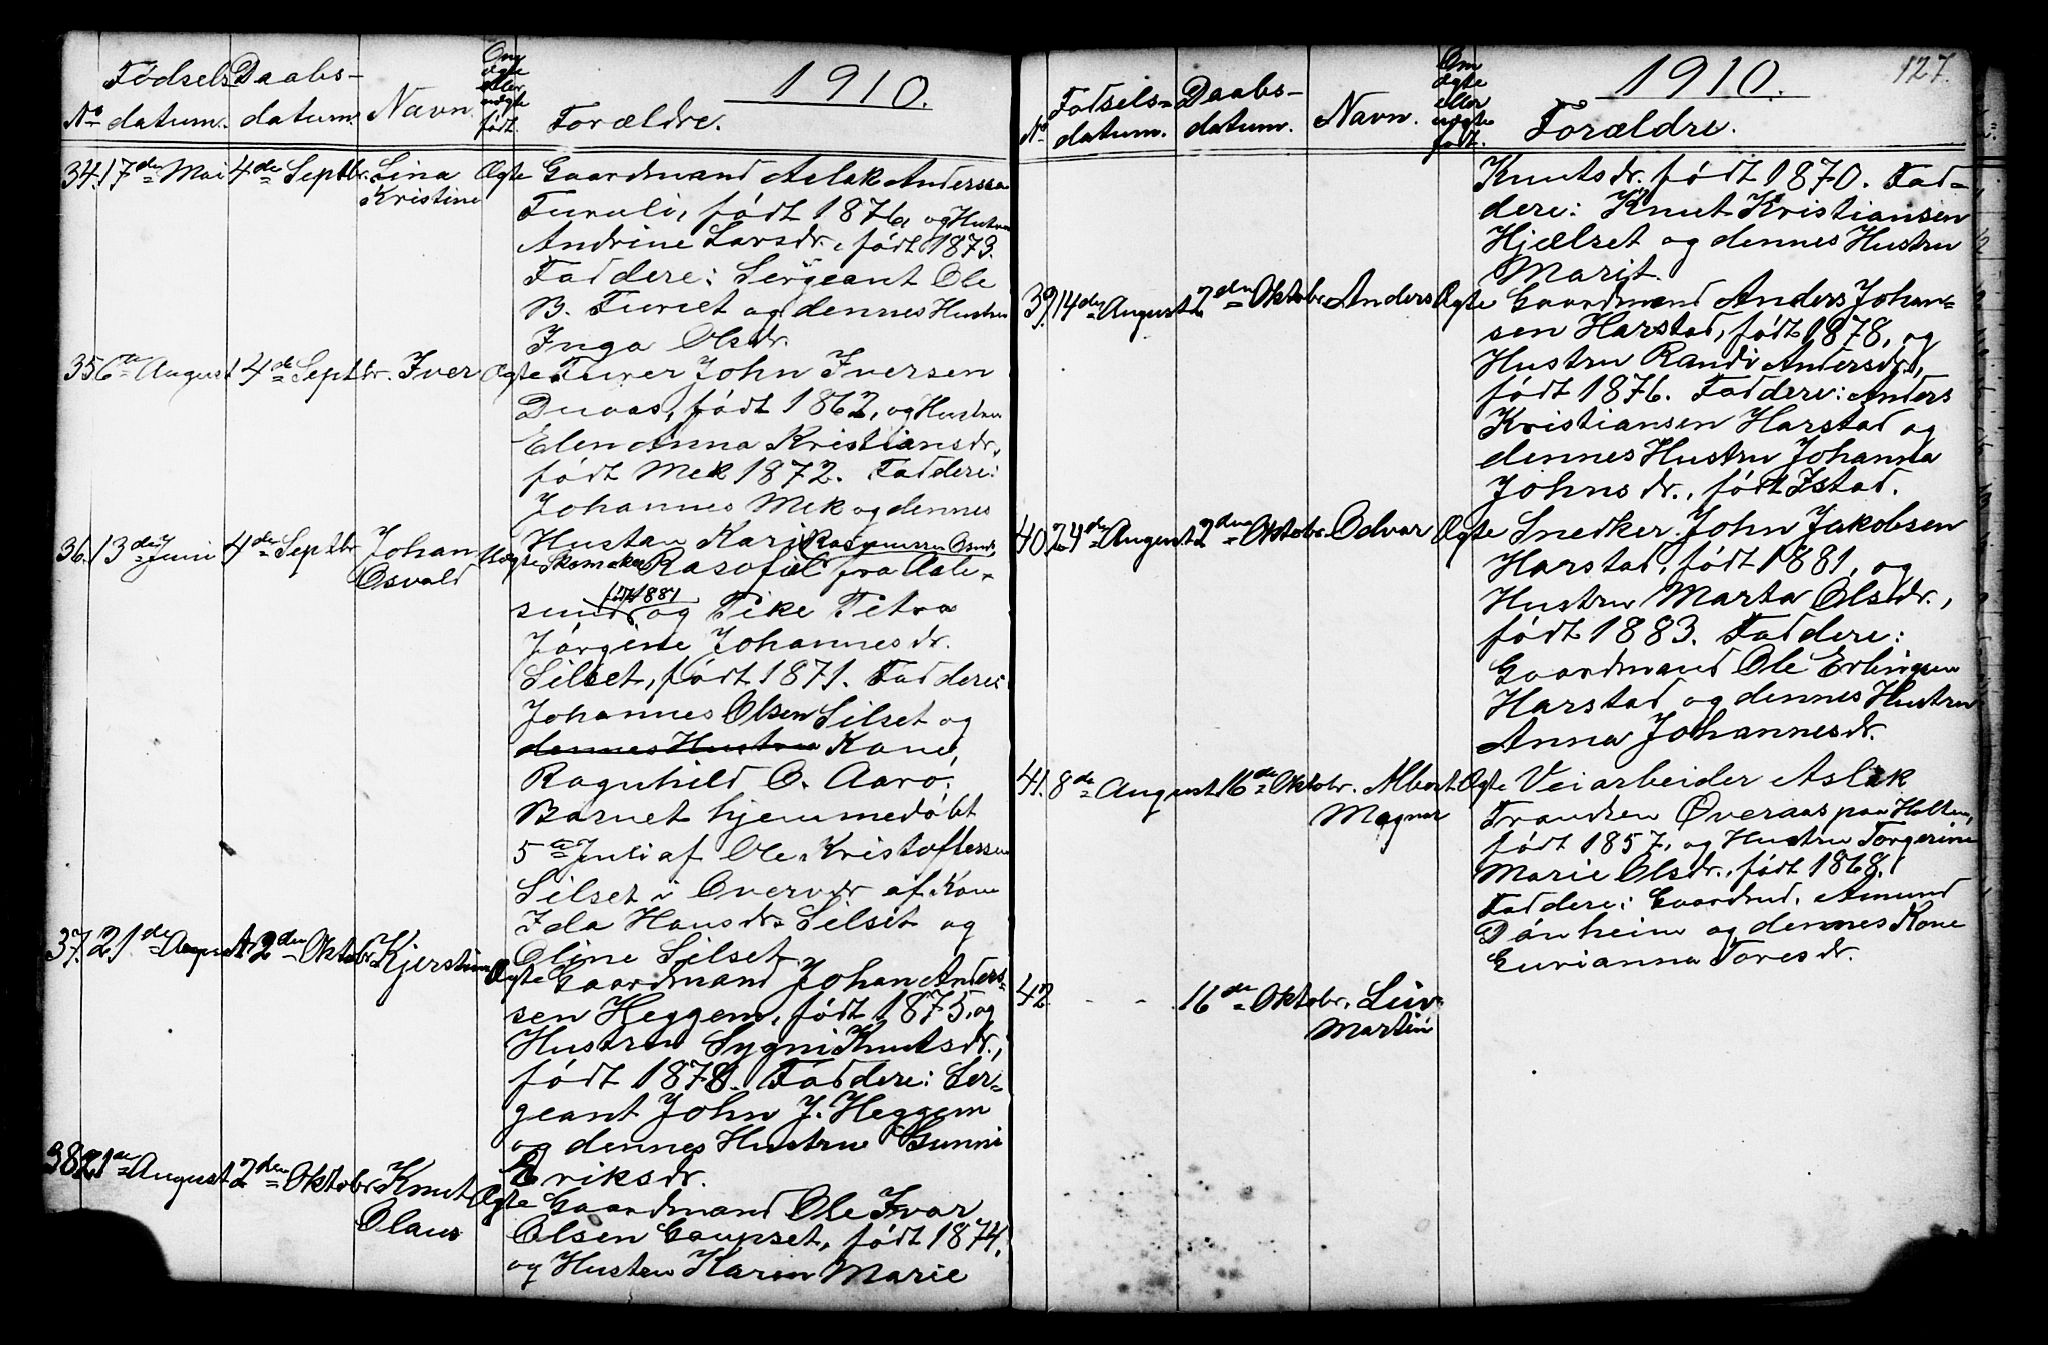 1910.
Om
ægte
eller
uægte
født.
Fødsels- Daabs-
No datum. datum. Navn. Forældre.
34. 17de Mai 4de Septbr. Lina Ægte Gaardmand Aslak Anderssen
Kristine
født 1876, og Hustru
Andrine Larsdr., født 1873.
Faddere: Sergeant Ole
B. og dennes Hustru
Inga Olsdr.
35 6te August 4de Septbr. Iver Ægte John Iversen
født 1862, og Hustru
Elen Anna Kristiansdr.
født Mek 1872. Faddere:
Johannes Mek og dennes
Hustru Kari
36. 13de Juni 4de Septbr. Johan Uægte Skomaker fra Aale-
Osvald
født 1881
sund og Pike Petra
Jørgine Johannesdr.
Silset, født 1871. Faddere:
Johannes Olsen Silset og
dennes Hustru Kone,
Ragnhild O. Aarø.
Barnet hjemmedøbt
5te Juli af Ole Kristoffersen
Silset i Overvær af Kone
Ida Hansdr. Silset og
Oline Silset.
37. 21de August 2den Oktobr. Kjerstine Ægte Gaardmand Johan Anders-
sen Heggem, født 1875, og
Hustru Sygni Knutsdr.,
født 1878. Faddere: Ser-
geant John J. Heggem
og dennes Hustru Gunni
Eriksdr.
38 21de August 2den Oktobr. Knut Ægte Gaardmand Ole Ivar
Olaus
Olsen Gaupset, født 1874,
og Hustru Karen Marie
127.
1910.
Om
ægte
eller
uægte
født.
Fødsels- Daabs-
No datum. datum. Navn. Forældre.
Knutsdr. født 1870. Fad-
dere: Knut Kristiansen
Hjælset og dennes Hustru
Marit.
39. 14de August 2den Oktobr. Anders Ægte Gaardmand Anders Johan-
sen Harstad, født 1878, og
Hustru Randi Andersdr.,
født 1876. Faddere: Anders
Kristiansen Harstad og
dennes Hustru Johanna
Johnsdr., født Istad.
40. 24de August 2den Oktobr. Odvar Ægte Snedker John Jakobsen
Harstad, født 1881, og
Hustru Marta Olsdr.,
født 1883. Faddere:
Gaardmand Ole Erlingsen
Harstad og dennes Hustru
Anna Johannesdr.
41. 8de August 16de Oktobr. Albert Ægte Veiarbeider Aslak
Magnar
Trondsen Øveraas paa Holten,
født 1857, og Hustru Torgerine
Marie Olsdr., født 1868.
Faddere: Gaardmd. Amund
Dønheim og dennes Kone
Gurianna Toresdr.
42 - - 16de Oktobr.
Martin